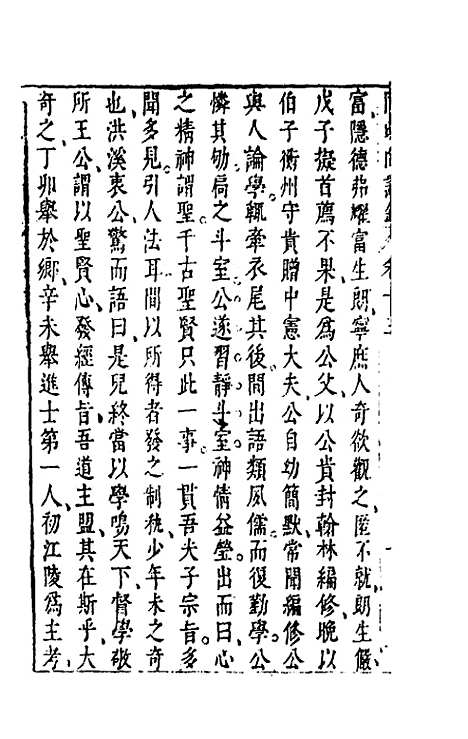 富隱德弗耀富生朗寧庶人奇欲觀之匿不就朗生儼
戊子擬首薦不果是爲公父以公貴封翰林編修晚以
伯子衢州守貴贈中憲大夫公自幼簡默常聞編修公
與人論學輒牽衣尾其後間出語類夙儒而復勤學公
憐其幼扃之斗室公遂習靜斗室神情益瑩出而曰心
之精神謂聖千古聖賢只此一事一貫吾夫子宗旨多
聞多見引人法耳間以所得者發之制秇少年未之奇
也洪溪衷公驚而語曰是兒終當以學鳴天下督學敬
所王公謂以聖賢心發經傳旨吾道主盟其在斯乎大
奇之丁卯舉於鄉辛未舉進士第一人初江陵爲主考